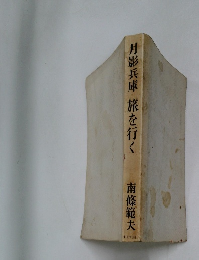 月影兵庫 旅を行く
南條範夫